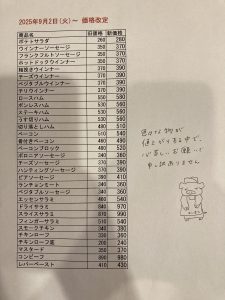 2025年9月2日(火)～ 価格改定
商品名 旧価格 新価格
ポテトサラダ 260 280
ウインナーソーセージ 350 370
フランクフルトソーセージ 350 370
ホットドックウインナー 350 370
粗挽きウインナー 370 390
チーズウインナー 370 390
ベジタブルウインナー 370 390
チョリソー 370 390
ロースハム 550 580
ボンレスハム 550 580
うす切りハム 550 580
切り落としハム 550 580
ベーコン 510 540
骨付きベーコン 460 490
ベーコンブロック 490 520
ボロニアソーセージ 350 380
チーズソーセージ 370 390
ハンティングソーセージ 370 390
ビアソーセージ 390 410
ランチョンミート 340 360
ベジタブルソーセージ 340 360
エッセンサラミ 540
ドライサラミ 840 970
スライスサラミ 870 990
フィンガーサラミ 510 540
スモークチキン 340 360
チキンローフ 330 360
チキンローフ皮 200 240
マスタード 350 370
コンビーフ 890 980
レバーペースト 410 430
色々な物が
値上がりする中で、
心苦しいお願いで
申し訳ありません